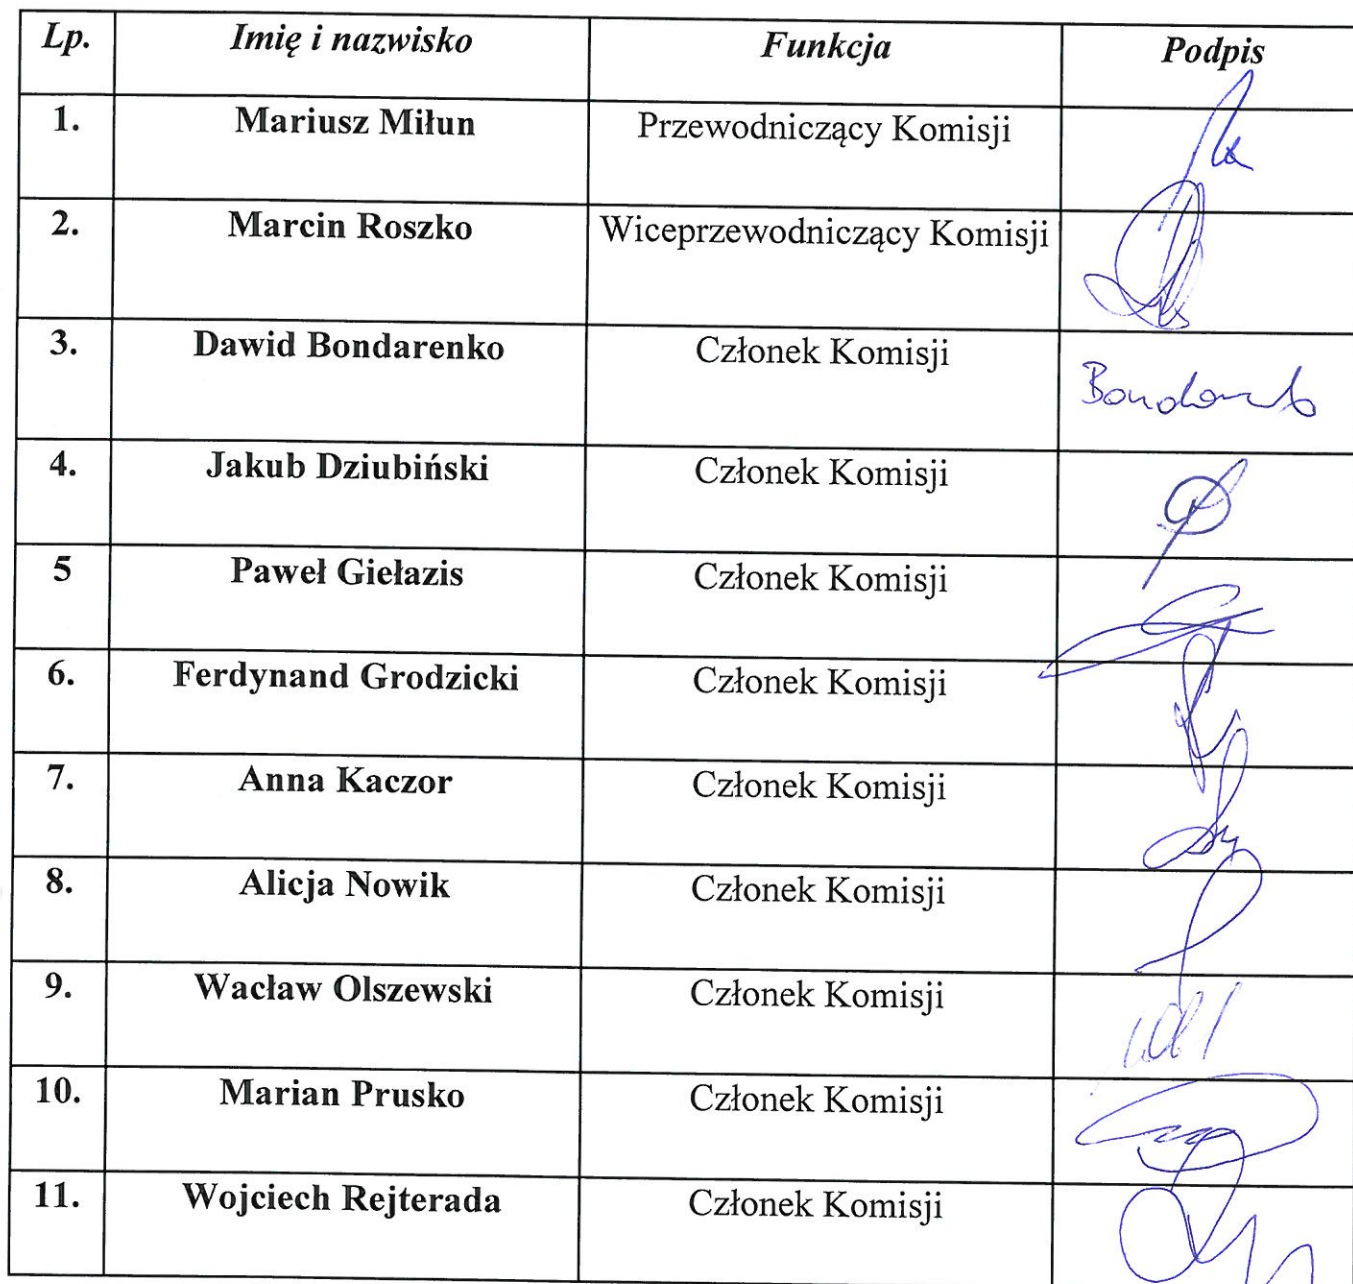 Lp. Imię i nazwisko Funkcja Podpis
1. Mariusz Miłun Przewodniczący Komisji
2. Marcin Roszko Wiceprzewodniczący Komisji
3. Dawid Bondarenko Członek Komisji
4. Jakub Dziubiński Członek Komisji
5 Paweł Giełazis Członek Komisji
6. Ferdynand Grodzicki Członek Komisji
7. Anna Kaczor Członek Komisji
8. Alicja Nowik Członek Komisji
9. Wacław Olszewski Członek Komisji
10. Marian Prusko Członek Komisji
11. Wojciech Rejterada Członek Komisji